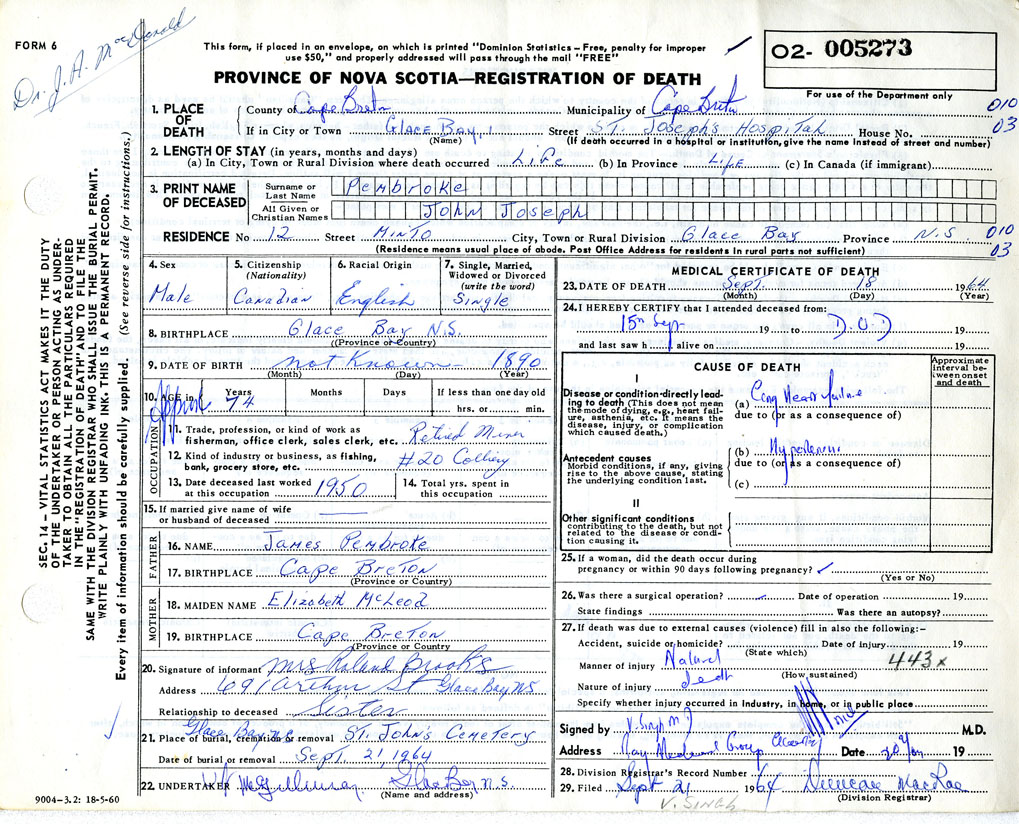 Dr. J. A. McDonald
FORM 6
This form, if placed in an envelope, on which is printed "Dominion Statistics – Free, penalty for improper
use $50," and properly addressed will pass through the mail "FREE"
PROVINCE OF NOVA SCOTIA—REGISTRATION OF DEATH
O2- 005273
For use of the Department only
1. PLACE OF DEATH
County of Cape Breton Municipality of Cape Breton 010
If in City or Town GLACE BAY, Street ST. JOSEPH'S HOSPITAL House No. 03
(Name) (If death occurred in a hospital or institution, give name instead of street and number)
2. LENGTH OF STAY (in years, months and days)
(a) In City, Town or Rural Division where death occurred LIFE (b) In Province LIFE (c) In Canada (if immigrant)
3. PRINT NAME OF DECEASED
Surname or Last Name Pembroke
All Given or Christian Names JOHN JOSEPH
RESIDENCE No 12 Street MINTO City, Town or Rural Division Glace Bay Province N.S. 010
(Residence means usual place of abode. Post Office Address for residents in rural parts not sufficient) 03
4. Sex Male
5. Citizenship (Nationality) Canadian
6. Racial Origin English
7. Single, Married, Widowed or Divorced (write the word) Single
8. BIRTHPLACE Glace Bay N.S.
(Province or Country)
9. DATE OF BIRTH not Known 1890
(Month) (Day) (Year)
10. AGE in Approx Years 74 Months Days If less than one day old
hrs. or min.
OCCUPATION
11. Trade, profession, or kind of work as
fisherman, office clerk, sales clerk, etc. Retired Miner
12. Kind of industry or business, as fishing,
bank, grocery store, etc. #20 Colliery
13. Date deceased last worked
at this occupation 1950
14. Total yrs. spent in
this occupation
15. If married give name of wife
or husband of deceased
FATHER
16. NAME James Pembroke
17. BIRTHPLACE Cape Breton
(Province or Country)
MOTHER
18. MAIDEN NAME Elizabeth McLeod
19. BIRTHPLACE Cape Breton
(Province or Country)
20. Signature of informant Mrs Roland Brooks
Address 691 Arthur St Glace Bay NS
Relationship to deceased Sister
Glace Bay N.S.
21. Place of burial, cremation or removal ST. JOHN'S CEMETERY
Date of burial or removal Sept. 21, 1964
22. UNDERTAKER Glace Bay N.S.
(Name and address)
9004-3.2: 18-5-60
MEDICAL CERTIFICATE OF DEATH
23. DATE OF DEATH Sept. 18 1964
(Month) (Day) (Year)
24. I HEREBY CERTIFY that I attended deceased from:
15th Sep 19 to D.O.D 19
and last saw h alive on 19
CAUSE OF DEATH
Approximate interval between onset and death
I
Disease or condition directly leading to death (This does not mean the mode of dying, e.g., heart failure, asthenia, etc. It means the disease, injury, or complication which caused death.)
(a) Cong Heart failure
due to (or as a consequence of)
Antecedent causes
Morbid conditions, if any, giving rise to the above cause, stating the underlying condition last.
(b) Hypertension
due to (or as a consequence of)
(c)
II
Other significant conditions
contributing to the death, but not related to the disease or condition causing it.
25. If a woman, did the death occur during
pregnancy or within 90 days following pregnancy?
(Yes or No)
26. Was there a surgical operation? Date of operation 19
State findings Was there an autopsy?
27. If death was due to external causes (violence) fill in also the following:–
Accident, suicide or homicide? Date of injury 19
(State which) 443x
Manner of injury Natural death
(How sustained)
Nature of injury
Specify whether injury occurred in Industry, in home, or in public place
Signed by V. Singh MD M.D.
Address Bay Medical Group Date 19
28. Division Registrar's Record Number
29. Filed Sept 21 1964 Duncan MacRae
(Division Registrar)
V. SINGH
SEC. 14 – VITAL STATISTICS ACT MAKES IT THE DUTY
OF THE UNDERTAKER OR PERSON ACTING AS UNDER-
TAKER TO OBTAIN ALL THE PARTICULARS REQUIRED
IN THE "REGISTRATION OF DEATH" AND TO FILE THE
SAME WITH THE DIVISION REGISTRAR WHO SHALL ISSUE THE BURIAL PERMIT.
WRITE PLAINLY WITH UNFADING INK. THIS IS A PERMANENT RECORD.
Every item of information should be carefully supplied. (See reverse side for instructions.)